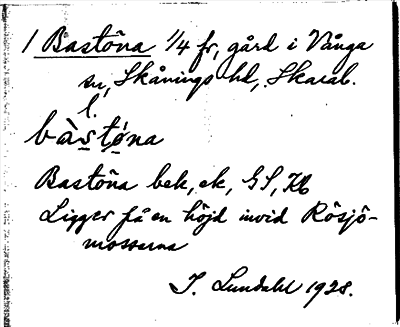 1 Bastöna 1/4 fr, gård i Vånga
sn, Skånings hd, Skarab.
l.
bàstǿna
Bastöna bek, ek, GS, Kb
Ligger på en höjd invid Rösjö-
mossarna
I. Lundahl 1928.